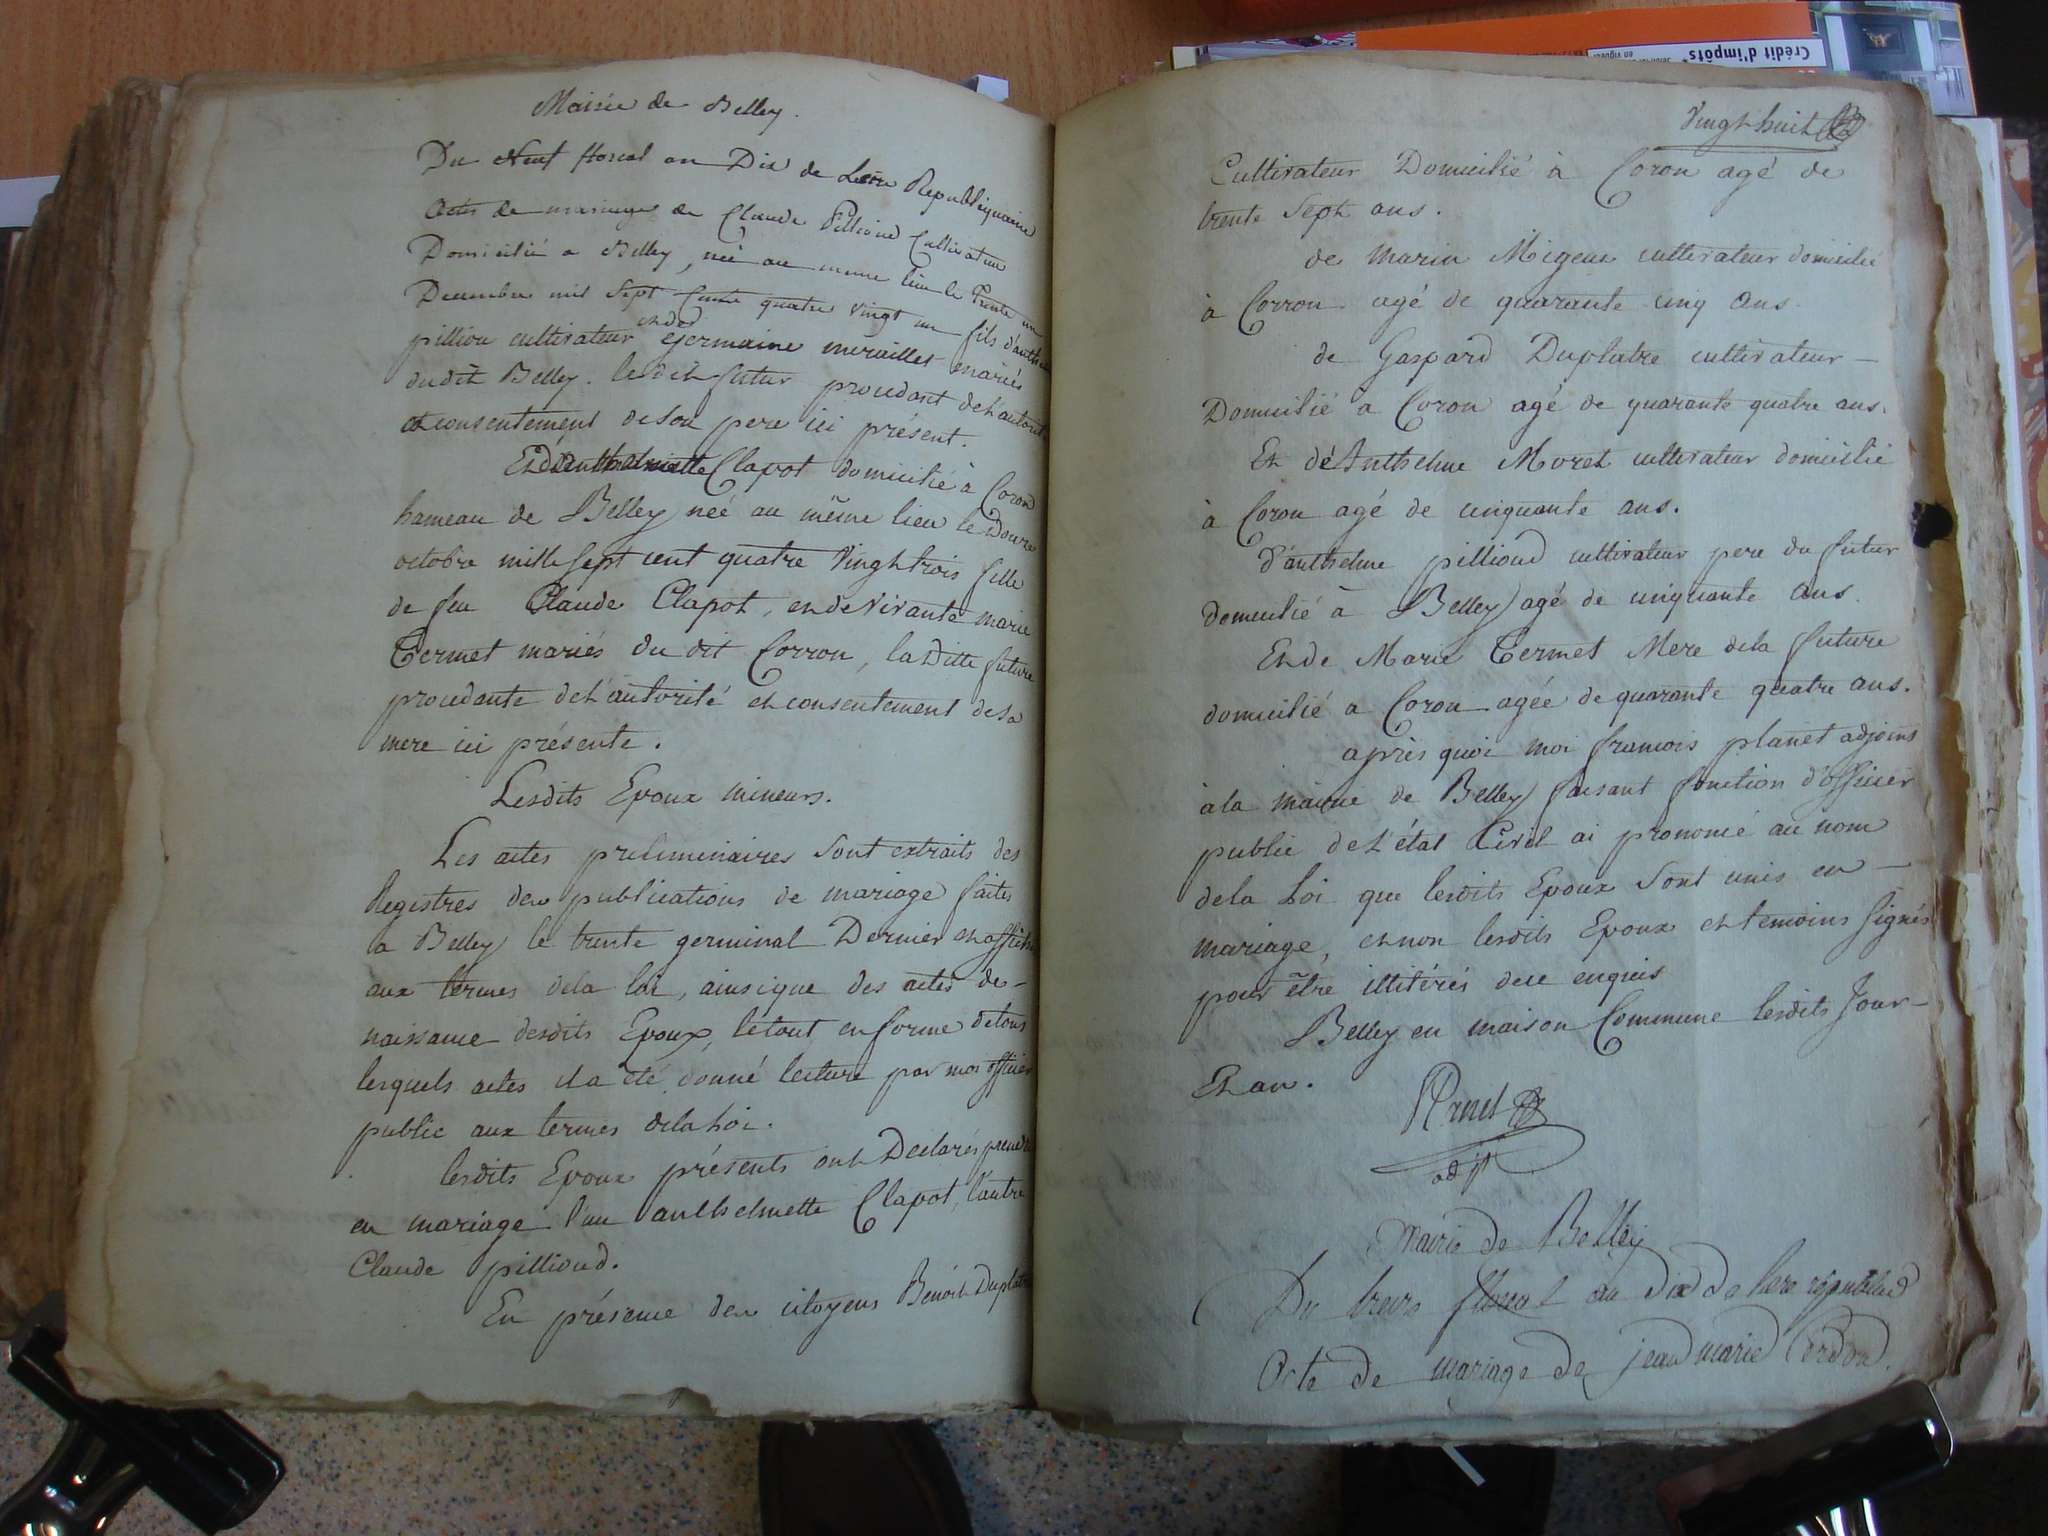 Mairie de Belley.
Du Neuf floreal an Dix de Lere Republiquaine
Acte de mariage de Claude Pilliond Cultivateur
Domicilié a Belley, née au meme lieu le trente un
Decembre mil Sept Cents quatre vingt un fils d'anthelme
pilliou cultivateur et de germaine mariés
dudit Belley. ledit futur procedant de L'autorité
et consentement de son pere ici présent.
Et d'anthelmette Clapot domicilié à Coron
hameau de Belley née au même lieu le Douze
octobre mille sept cent quatre vingt trois fille
de feu Claude Clapot, et de vivante marie
Termet mariés du dit Corron, la ditte future
procedante de L'autorité et consentement de sa
mere ici présente.
Lesdits Epoux mineurs.
Les actes preliminaires sont extraits des
Registres des publications de mariage faites
a Belley le trente germinal Dernier et affiché
aux termes de la loi, ainsique des actes de-
naissance desdits Epoux, le tout en forme de tous
lesquels actes il a été donné lecture par moi officier
public aux termes de la Loi.
lesdits Epoux présents ont Declarés prendre
en mariage l'un anthelmette Clapot, l'autre
Claude pilliond.
En présence des citoyens Benoit Duplatre
Vingt huit
Cultivateur Domicilié à Coron agé de
trente Sept ans.
de Marin Migeue cultivateur domicilié
à Corron agé de quarante cinq ans.
de Gaspard Duplatre cultivateur-
Domicilié a Coron agé de quarante quatre ans.
Et de Anthelme Moret cultivateur domicilié
à Coron agé de cinquante ans.
d'anthelme pilliond cultivateur pere du futur
domicilié à Belley agé de cinquante ans.
Et de Marie Termet Mere de la future
domicilié a Coron agée de quarante quatre ans.
après quoi moi francois planet adjoins
à la mairie de Belley faisant fonction d'officier
public de L'état Civil ai prononcé au nom
de la Loi que lesdits Epoux Sont unis en-
mariage, et non lesdits Epoux et temoins signés
pour être illitérés de ce enquis
Belley en maison Commune lesdits Jour-
Et an.
adjt
Mairie de Belley
Du treize floreal an dix de lere republicaine
Acte de mariage de jean marie Cerdon